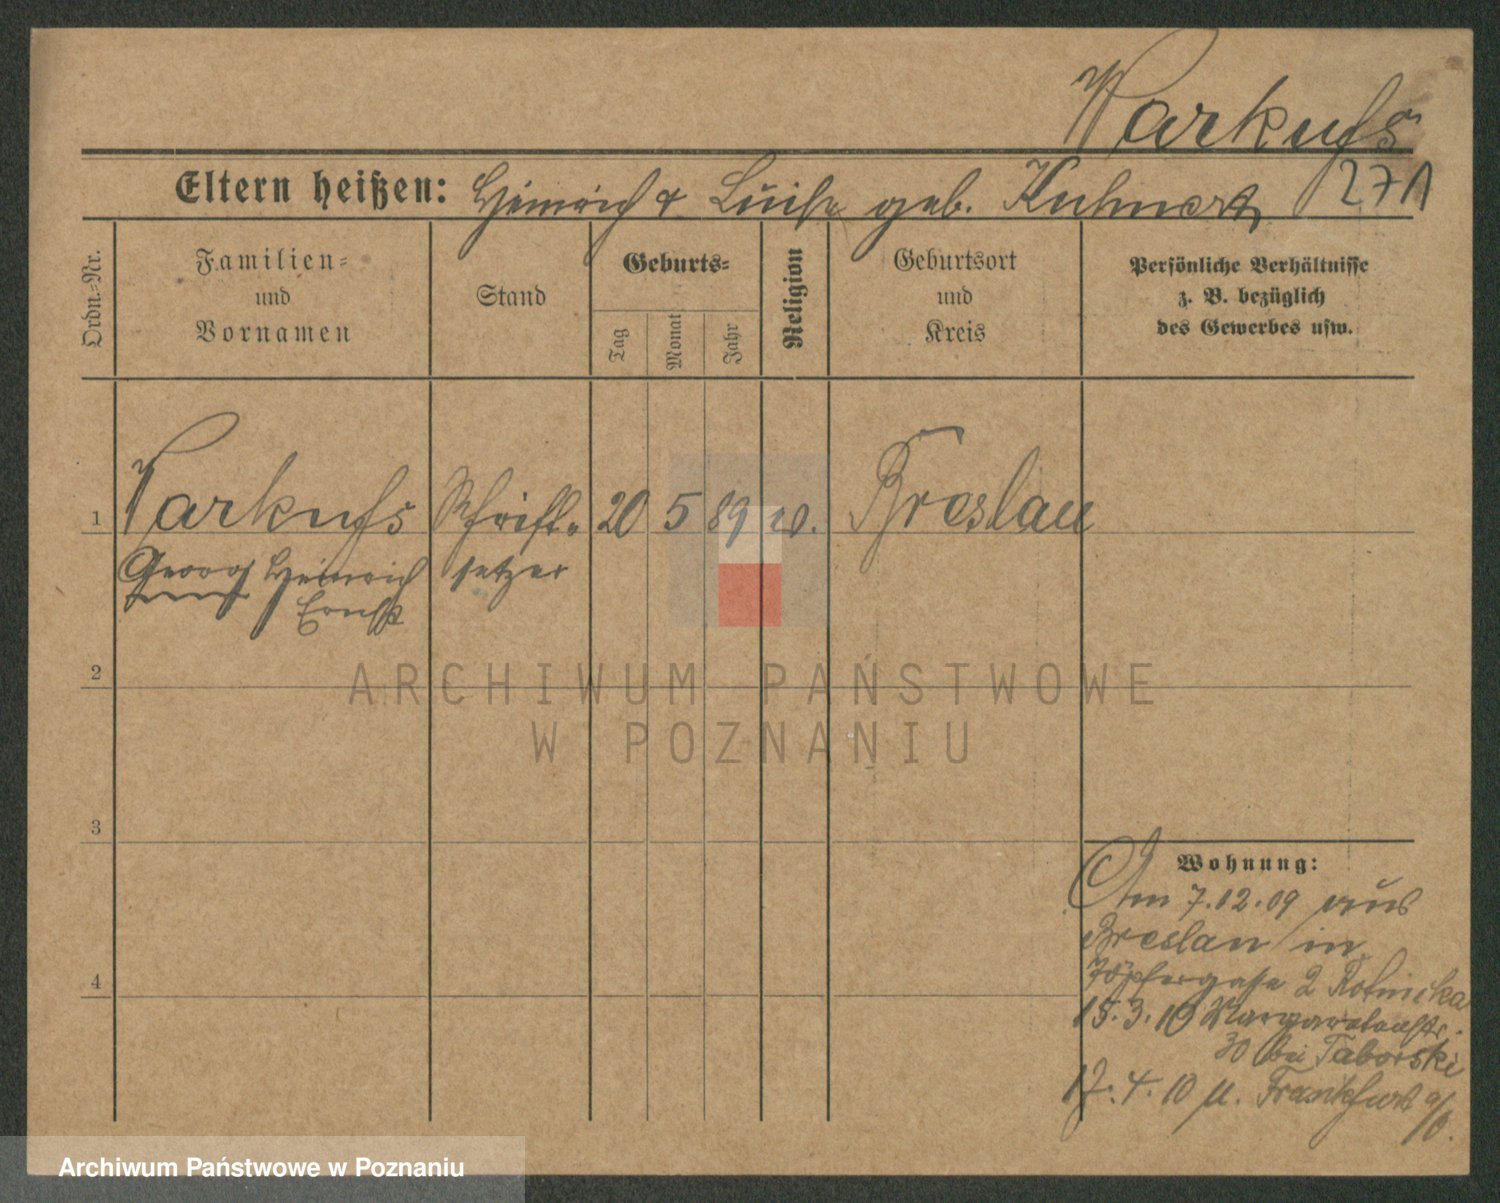 Varkuß
271
Eltern heißen: Heinrich & Luise geb. Kuhnert
Ordn.-Nr.
Familien-
und
Vornamen
Stand
Geburts-
Tag
Monat
Jahr
Religion
Geburtsort
und
Kreis
Persönliche Verhältnisse
z. B. bezüglich
des Gewerbes usw.
1 Varkuß Schrift- 20 5 89 Breslau
Georg Heinrich setzer
Ernst
2
3
4
Wohnung:
Am 7.12.09 aus
Breslau in
Töpfergasse 2
15.3.10
30 bei Taborski
17.4.10 n. Frankfurt a/O.
ARCHIWUM PAŃSTWOWE
W POZNANIU
Archiwum Państwowe w Poznaniu